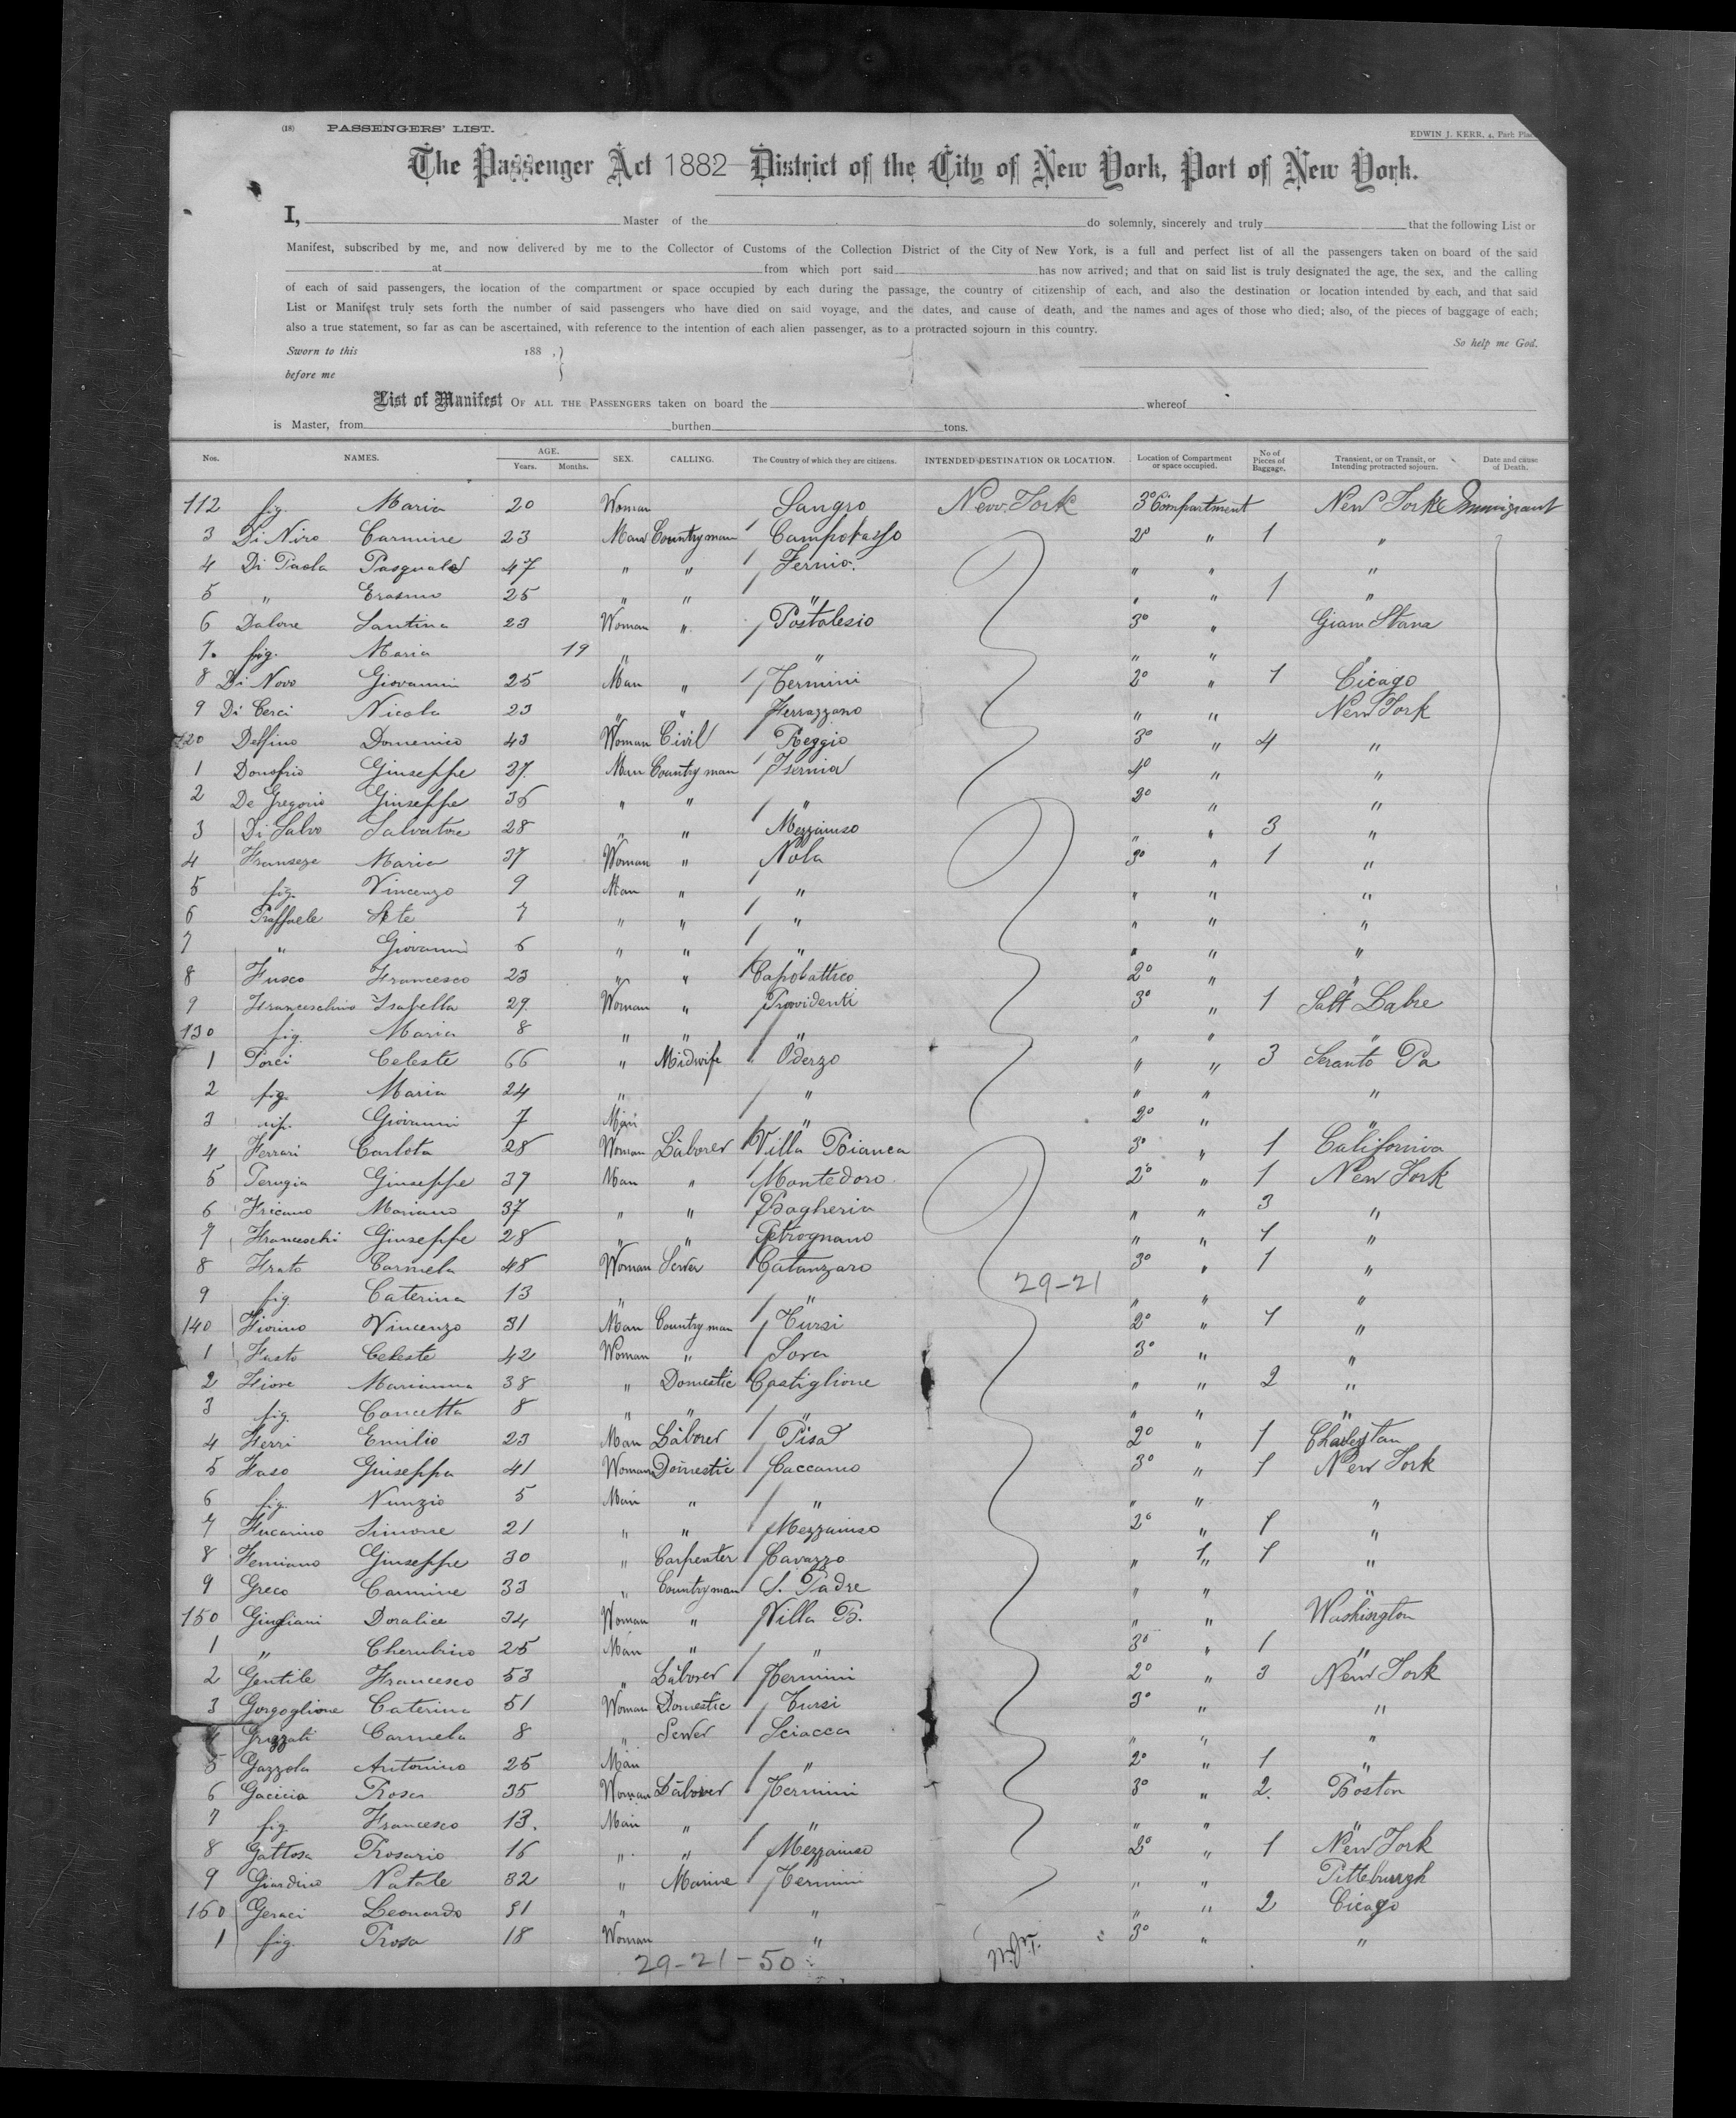 (18) PASSENGERS' LIST.
EDWIN J. KERR, 4, Park Plac
The Passenger Act 1882 District of the City of New York, Port of New York.
I, Master of the do solemnly, sincerely and truly that the following List or
Manifest, subscribed by me, and now delivered by me to the Collector of Customs of the Collection District of the City of New York, is a full and perfect list of all the passengers taken on board of the said
at from which port said has now arrived; and that on said list is truly designated the age, the sex, and the calling
of each of said passengers, the location of the compartment or space occupied by each during the passage, the country of citizenship of each, and also the destination or location intended by each, and that said
List or Manifest truly sets forth the number of said passengers who have died on said voyage, and the dates, and cause of death, and the names and ages of those who died; also, of the pieces of baggage of each;
also a true statement, so far as can be ascertained, with reference to the intention of each alien passenger, as to a protracted sojourn in this country.
So help me God.
Sworn to this 188
before me
List of Manifest OF ALL THE PASSENGERS taken on board the whereof
is Master, from burthen tons.
Nos. NAMES. AGE. Years. Months. SEX. CALLING. The Country of which they are citizens. INTENDED DESTINATION OR LOCATION. Location of Compartment or space occupied. No of Pieces of Baggage. Transient, or on Transit, or Intending protracted sojourn. Date and cause of Death.
112 fig. Maria 20 Woman Sangro New York 3° Compartment New York Immigrant
3 Di Niro Carmine 23 Man Countryman Campobasso 2° " 1 "
4 Di Paola Pasquale 47 " " " " "
5 " Erasmo 25 " " " " " 1 "
6 Dalone Santina 23 Woman " Postalesio 3° "
7. fig. Maria 19 " " " " "
8 Di Novo Giovanni 25 Man " Termini 2° " 1 Cicago
9 Di Cerci Nicola 23 " " Ferrazzano " " New York
120 Delfino Domenico 43 Woman Civil Reggio 3° " 4 "
1 Donofrio Giuseppe 27. Man Country man Isernia 4° " "
2 De Gregorio Giuseppe 36 " " " 2° " "
3 Di Salvo Salvatore 28 " " Mezzaiuso " " 3 "
4 Franseze Maria 37 Woman " Nola 3° " 1 "
5 fig. Vincenzo 9 Man " " " " "
6 Raffaele 7 " " " " " "
7 " Giovanni 6 " " " " " "
8 Fusco Francesco 23 " " 2° " "
9 Franceschino Isabella 29. Woman " Providenti 3° " 1 Salt Lake
130 fig. Maria 8 " " " " " "
1 Celeste 66 " Midwife Oderzo " " 3 Seranto Pa
2 fig. Maria 24 " " " " "
3 Giovanni 7 Man " 2° " "
4 Ferrari Carlota 28 Woman Laborer Villa Bianca 3° " 1 California
5 Perugia Giuseppe 39 Man " Montedoro. 2° " 1 New York
6 Fricano Mariano 37 " " Bagheria " " 3 "
7 Franceschi Giuseppe 28 " " Petrognano " " 1 "
8 Frato Carmela 48 Woman Sewer Catanzaro 3° " 1 "
9 fig. Caterina 13 " " " " "
29-21
140 Fiorino Vincenzo 31 Man Country man Tursi 2° " 1 "
1 Fusto Celeste 42 Woman " Sora 3° " "
2 Fiore Marianna 38 " Domestic Castiglione " " 2 "
3 fig. Concetta 8 " " " " " "
4 Ferri Emilio 23 Man Laborer Pisa 2° " 1 Charlestan
5 Faso Giuseppa 41 Woman Domestic Caccamo 3° " 1 New York
6 fig. Nunzio 5 Man " " " " "
7 Fucarino Simone 21 " " Mezzaiuso 2° " 1 "
8 Femiano Giuseppe 30 " Carpenter Cavazzo " " 1 "
9 Greco Carmine 33 " Countryman S. Padre " " "
150 Giugliani Doralice 34 Woman " Villa B. " " Washington
1 " Cherubino 25 Man " " 3° " 1 "
2 Gentile Francesco 53 " Laborer Termini 2° " 3 New York
3 Gorgoglione Caterina 51 Woman Domestic Tursi 3° " "
4 Grizzati Carmela 8 " Sewer Sciacca " " "
5 Gazzola Antonino 25 Man " 2° " 1 "
6 Rosa 35 Woman Laborer Termini 3° " 2. Boston
7 fig. Francesco 13. Man " " " " "
8 Gattosa Rosario 16 " " Mezzaiuso 2° " 1 New York
9 Giardino Natale 32 " Marine Termini " " Pitteburgh
160 Geraci Leonardo 31 " " " " 2 Cicago
1 fig. Rosa 18 Woman " 3° " "
29-21-50